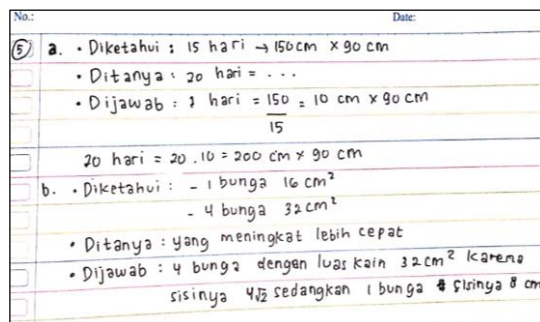 No.: Date:
5 a. • Diketahui : 15 hari → 150 cm × 90 cm
• Ditanya : 20 hari = ...
• Dijawab : 1 hari = 150/15 = 10 cm × 90 cm
20 hari = 20 . 10 = 200 cm × 90 cm
b. • Diketahui : - 1 bunga 16 cm²
- 4 bunga 32 cm²
• Ditanya : yang meningkat lebih cepat
• Dijawab : 4 bunga dengan luas kain 32 cm² karena
sisinya 4√2 sedangkan 1 bunga sisinya 8 cm